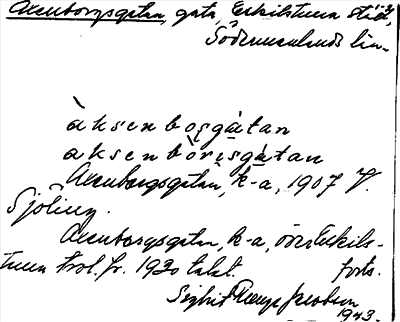 Axenborgsgatan, gata, Eskilstuna stad,
Södermanlands län.
àksenbosgàtan
aksenbòrisgàtan
Axenborgsgatan, k-a, 1907 F.
Sjöling.
Axenborgsgatan, k-a, över Eskils-
tuna trol. fr. 1920 talet. forts.
Sigbrit Jacobson
1943.